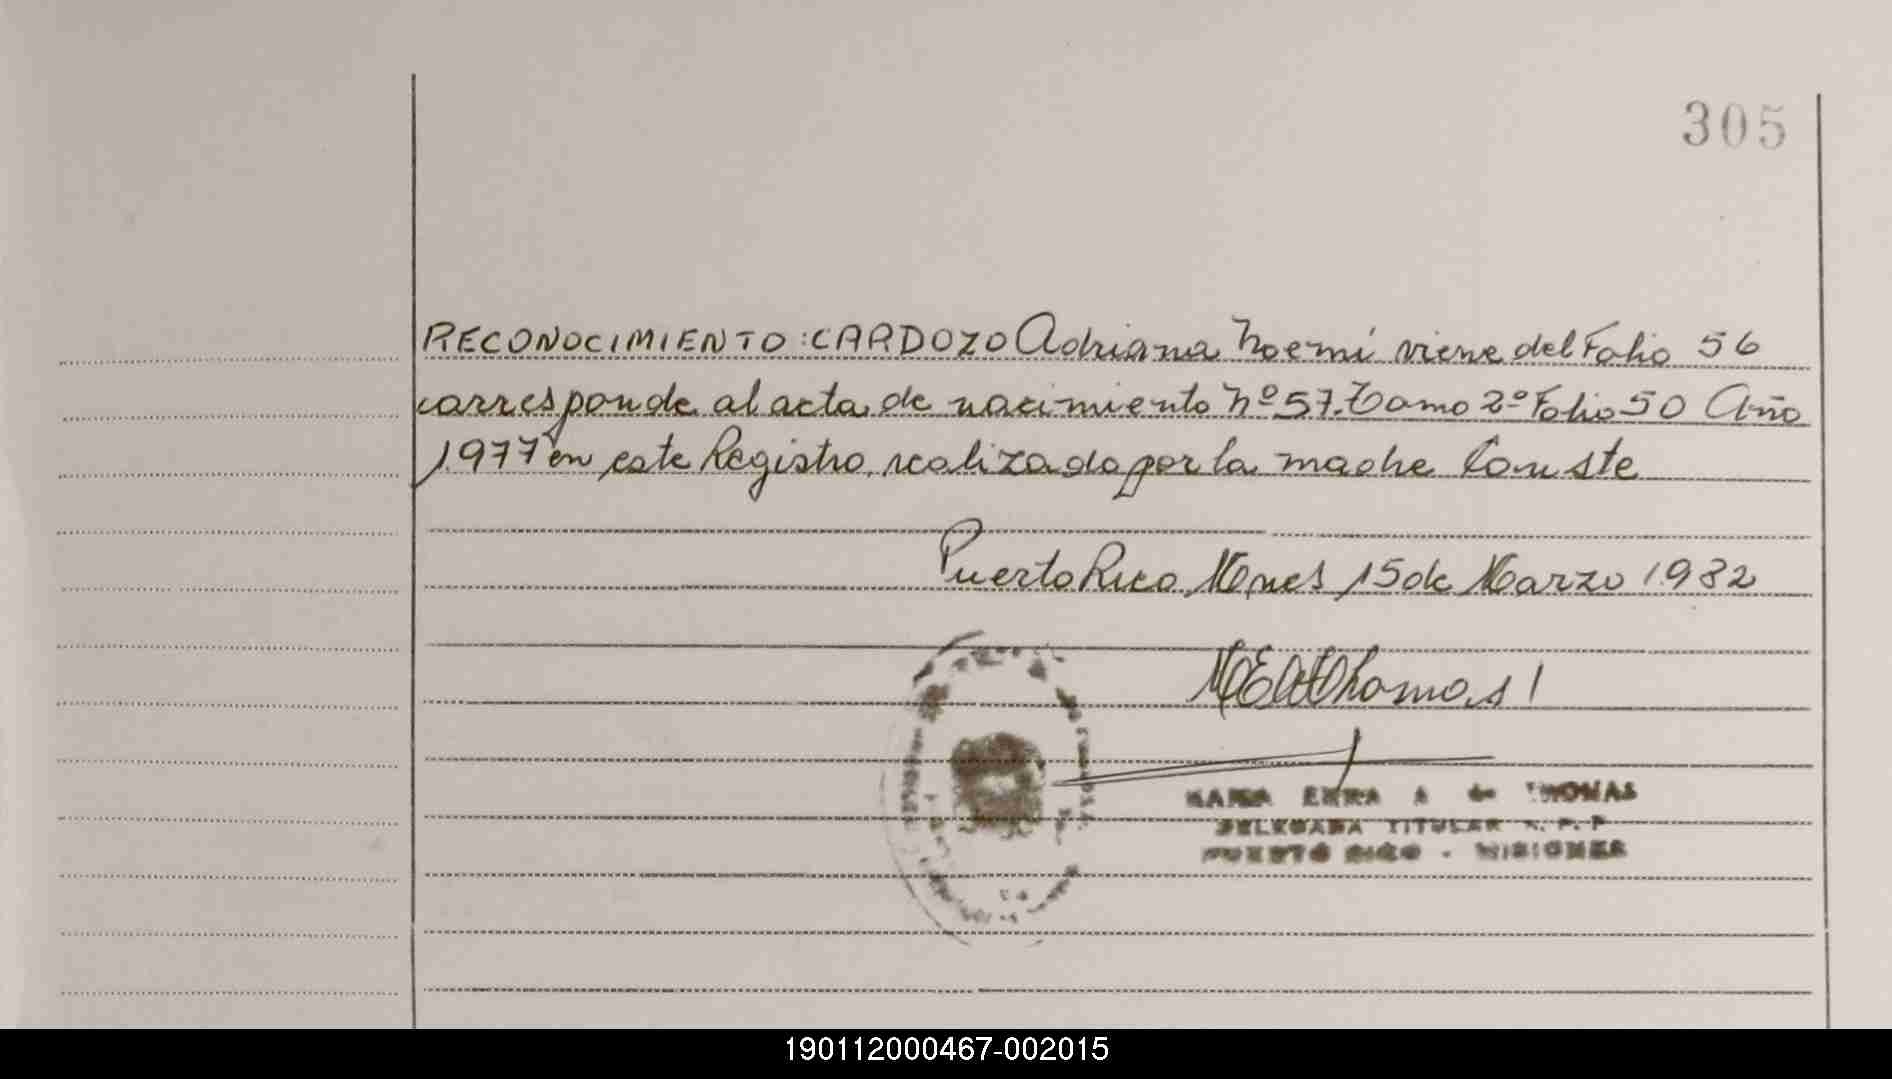 305
RECONOCIMIENTO: CARDOZO Adriana Noemí viene del Folio 56
corresponde al acta de nacimiento Nº 57. Tomo 2º Folio 50 Año
1977 en este Registro, realizado por la madre Conste
Puerto Rico, Mnes 15 de Marzo 1982
Thomas
MARIA A de THOMAS
DELEGADA TITULAR R. P. P
PUERTO RICO - MISIONES
190112000467-002015